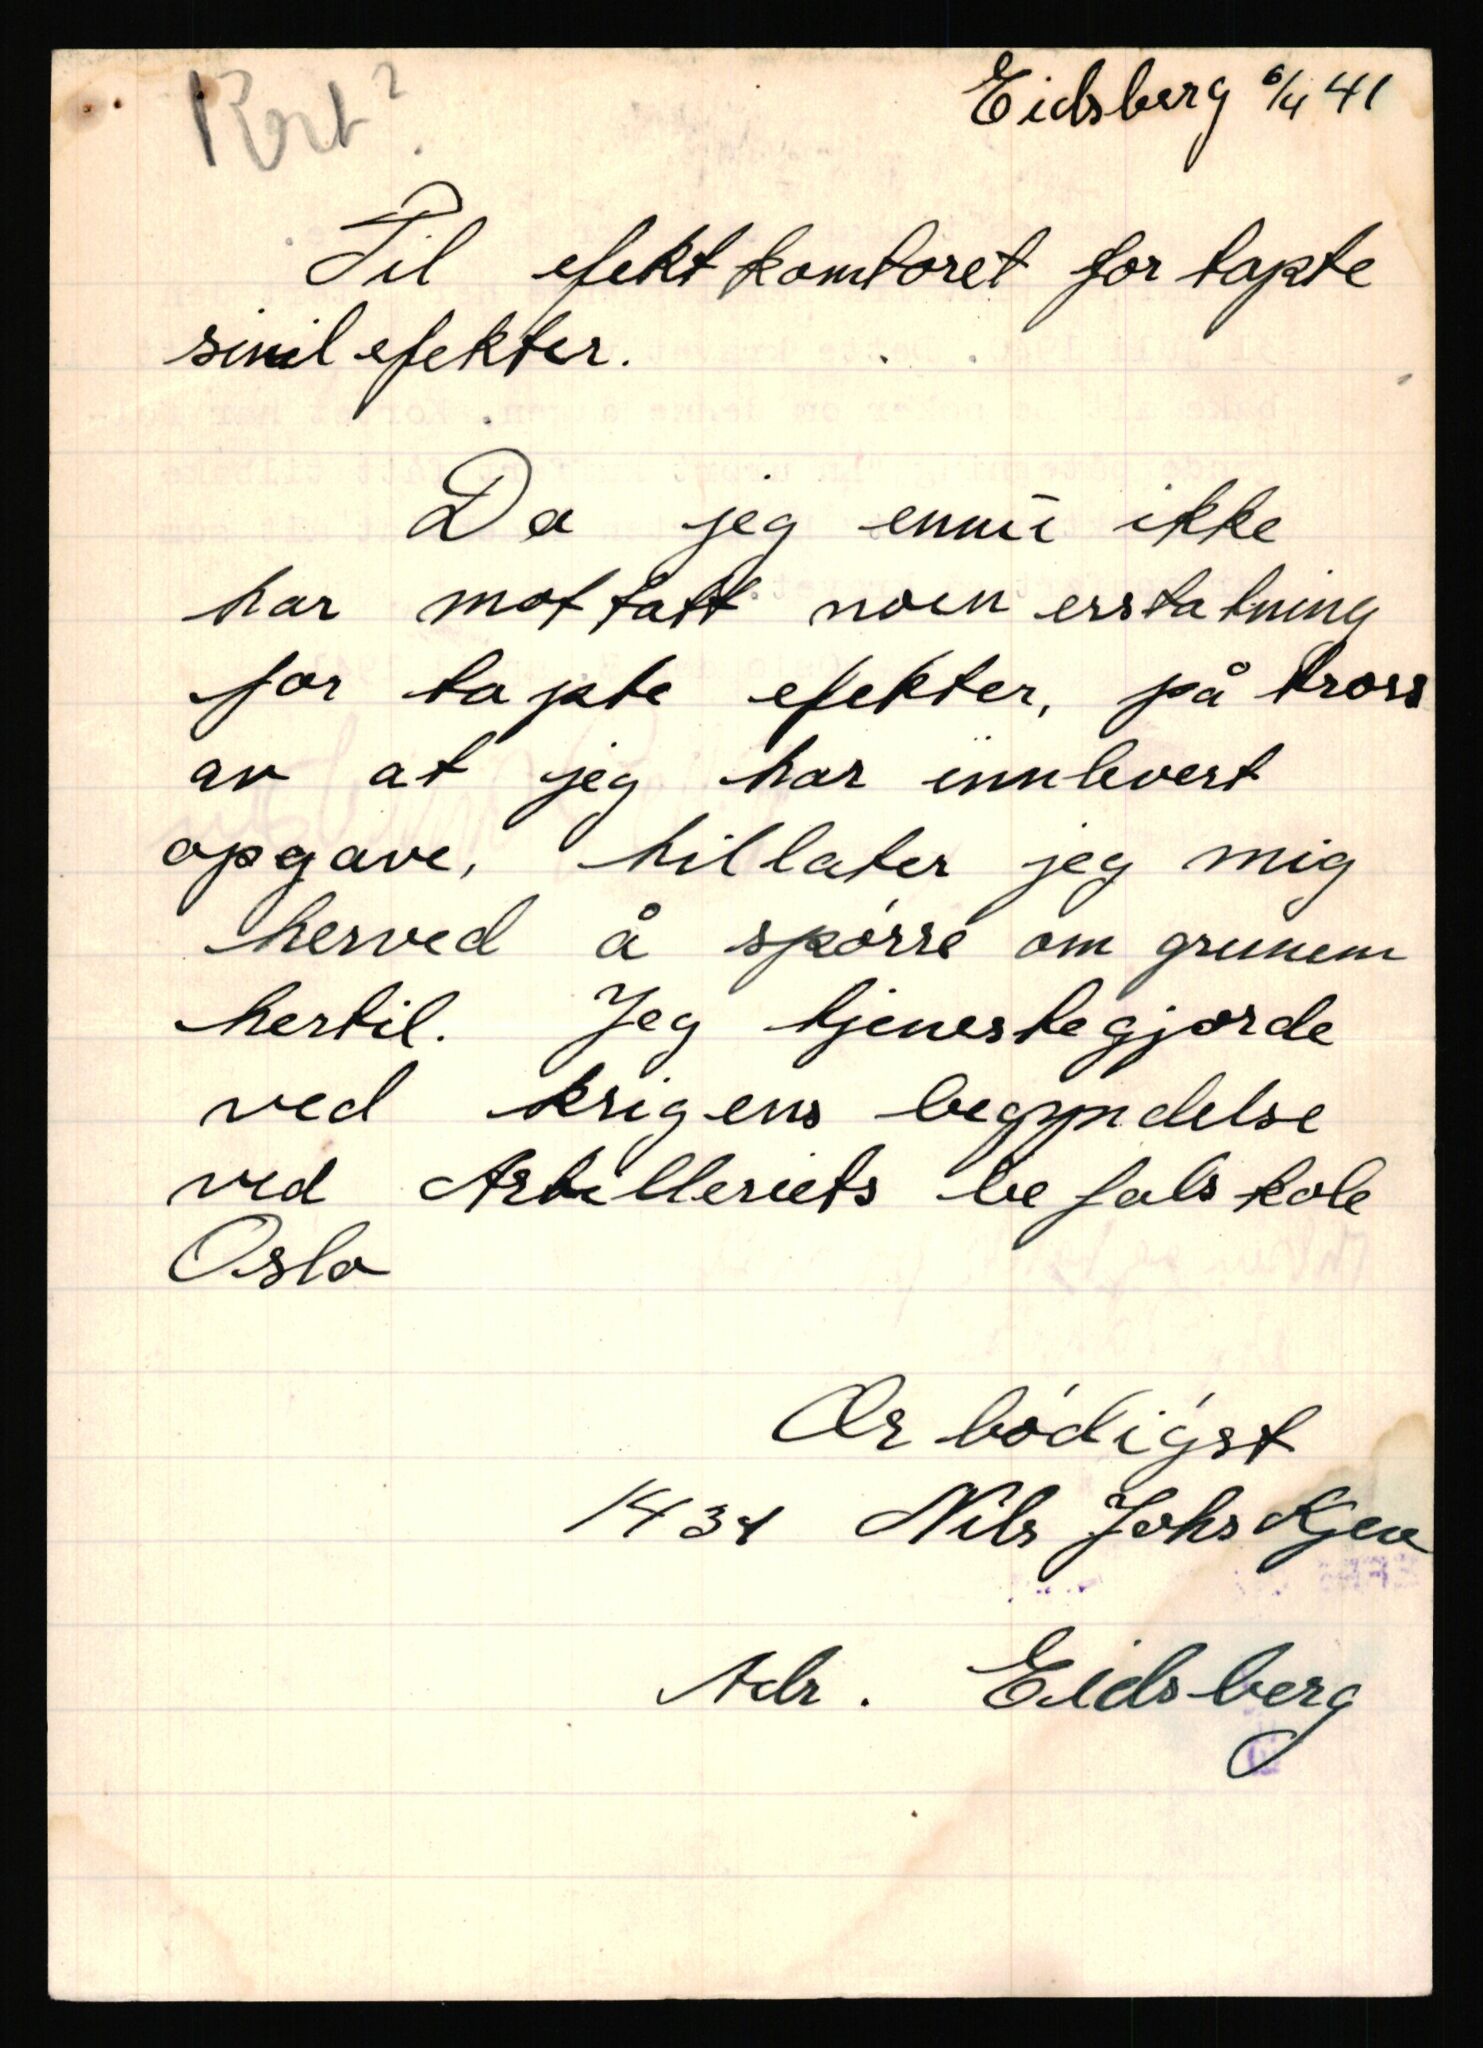 Kort?
Eidsberg 6/4 41
Til efektkontoret for tapte
sivilefekter.
Da jeg ennu ikke
har mottatt noen erstatning
for tapte efekter, på tross
av at jeg har innlevert
opgave, tillater jeg mig
herved å spórre om grunnen
hertil. Jeg tjenestegjorde
ved krigens begynndelse
ved Artilleriets befalskole
Oslo
Ærbódigst
1434 Nils Johs
Adr. Eidsberg